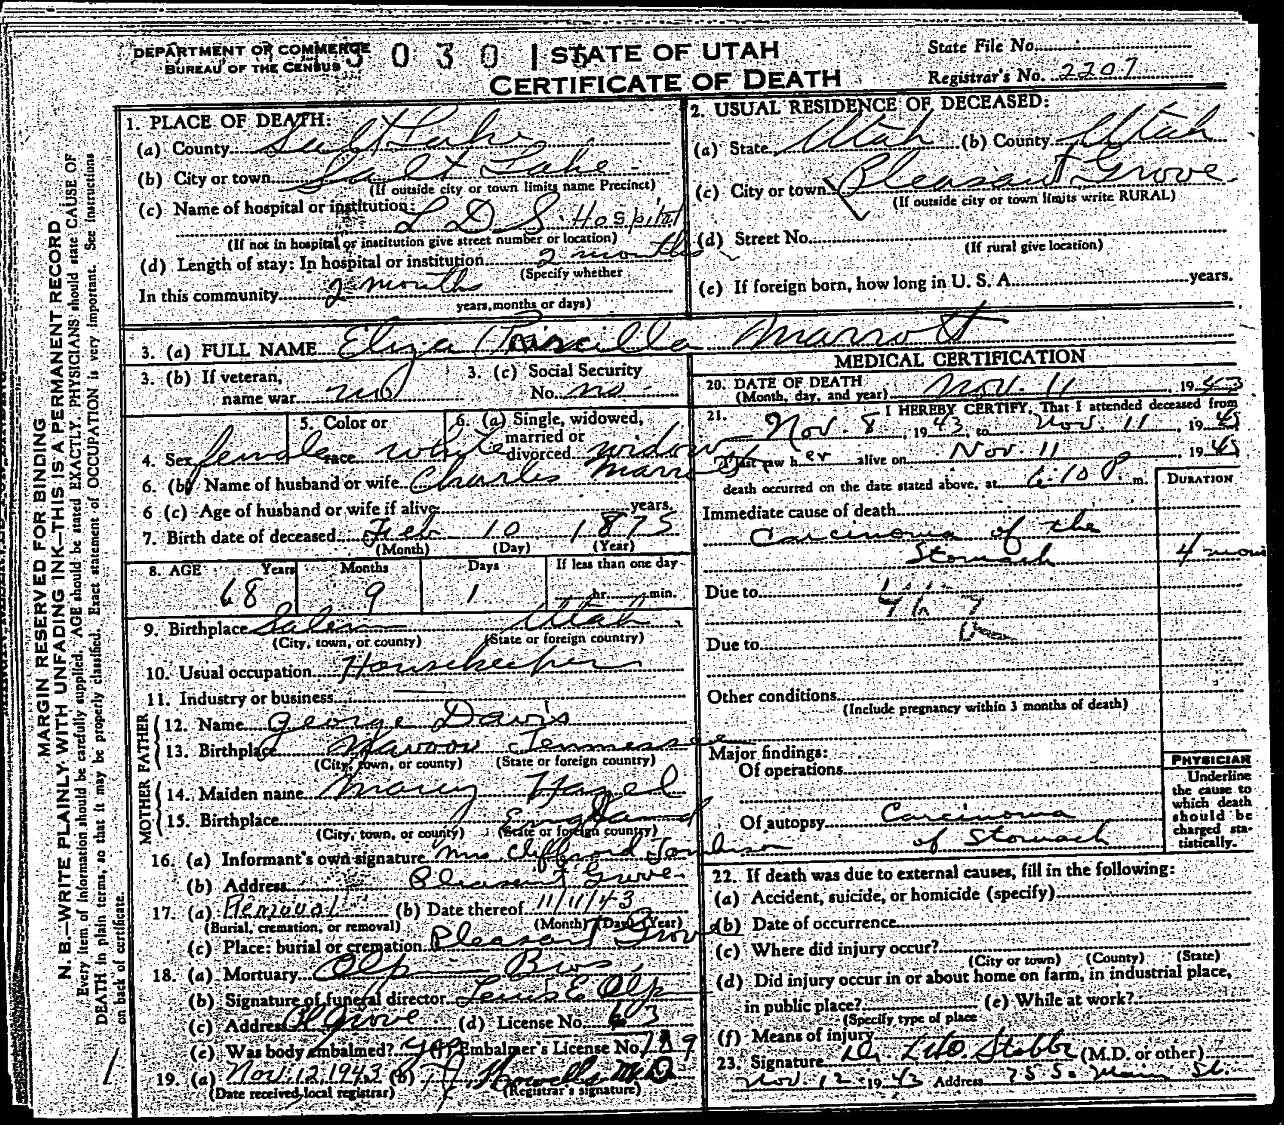 DEPARTMENT OF COMMERCE
BUREAU OF THE CENSUS
3 0 3 0 1
STATE OF UTAH
CERTIFICATE OF DEATH
State File No.
Registrar's No. 2207
MARGIN RESERVED FOR BINDING
N. B.—WRITE PLAINLY WITH UNFADING INK—THIS IS A PERMANENT RECORD
Every item of information should be carefully supplied. AGE should be stated EXACTLY. PHYSICIANS should state CAUSE OF
DEATH in plain terms, so that it may be properly classified. Exact statement of OCCUPATION is very important. See instructions
on back of certificate.
1. PLACE OF DEATH:
(a) County Salt Lake
(b) City or town Salt Lake
(If outside city or town limits name Precinct)
(c) Name of hospital or institution:
L D S Hospital
(If not in hospital or institution give street number or location)
(d) Length of stay: In hospital or institution 2 months
(Specify whether
In this community 2 months
years, months or days)
2. USUAL RESIDENCE OF DECEASED:
(a) State Utah (b) County Utah
(c) City or town Pleasant Grove
(If outside city or town limits write RURAL)
(d) Street No.
(If rural give location)
(e) If foreign born, how long in U. S. A. years.
3. (a) FULL NAME Eliza Priscilla Marrott
3. (b) If veteran, name war no
3. (c) Social Security No. no
4. Sex female
5. Color or race white
6. (a) Single, widowed, married or divorced widow
6. (b) Name of husband or wife Charles Marrott
6 (c) Age of husband or wife if alive years.
7. Birth date of deceased Feb 10 1875
(Month) (Day) (Year)
8. AGE Years Months Days If less than one day
68 9 1 hr. min.
9. Birthplace Salem Utah
(City, town, or county) (State or foreign country)
10. Usual occupation Housekeeper
11. Industry or business
FATHER
12. Name George Davis
13. Birthplace Tennessee
(City, town, or county) (State or foreign country)
MOTHER
14. Maiden name Mary Hazel
15. Birthplace England
(City, town, or county) (State or foreign country)
16. (a) Informant's own signature Mrs Clifford
(b) Address Pleasant Grove
17. (a) Removal (b) Date thereof 11/11/43
(Burial, cremation, or removal) (Month) (Day) (Year)
(c) Place: burial or cremation Pleasant Grov
18. (a) Mortuary Olp Bros.
(b) Signature of funeral director Lewis E Olp
(c) Address Pl Grove (d) License No. 63
(e) Was body embalmed? yes (f) Embalmer's License No. 189
19. (a) Nov. 12, 1943 (b) M.D.
(Date received local registrar) (Registrar's signature)
MEDICAL CERTIFICATION
20. DATE OF DEATH Nov. 11, 1943
(Month, day, and year)
21. I HEREBY CERTIFY, That I attended deceased from
Nov. 8, 1943 to Nov. 11, 1943
I last saw her alive on Nov 11, 1943
death occurred on the date stated above, at 6:10 P. m.
DURATION
Immediate cause of death
Carcinoma of the
Stomach 4 mos
Due to
Due to
Other conditions
(Include pregnancy within 3 months of death)
Major findings:
Of operations
Of autopsy Carcinoma
of Stomach
PHYSICIAN
Underline
the cause to
which death
should be
charged sta-
tistically.
22. If death was due to external causes, fill in the following:
(a) Accident, suicide, or homicide (specify)
(b) Date of occurrence
(c) Where did injury occur?
(City or town) (County) (State)
(d) Did injury occur in or about home on farm, in industrial place,
in public place? (e) While at work?
(Specify type of place
(f) Means of injury
23. Signature (M.D. or other)
Nov 12 1943 Address 75 S. Main St.